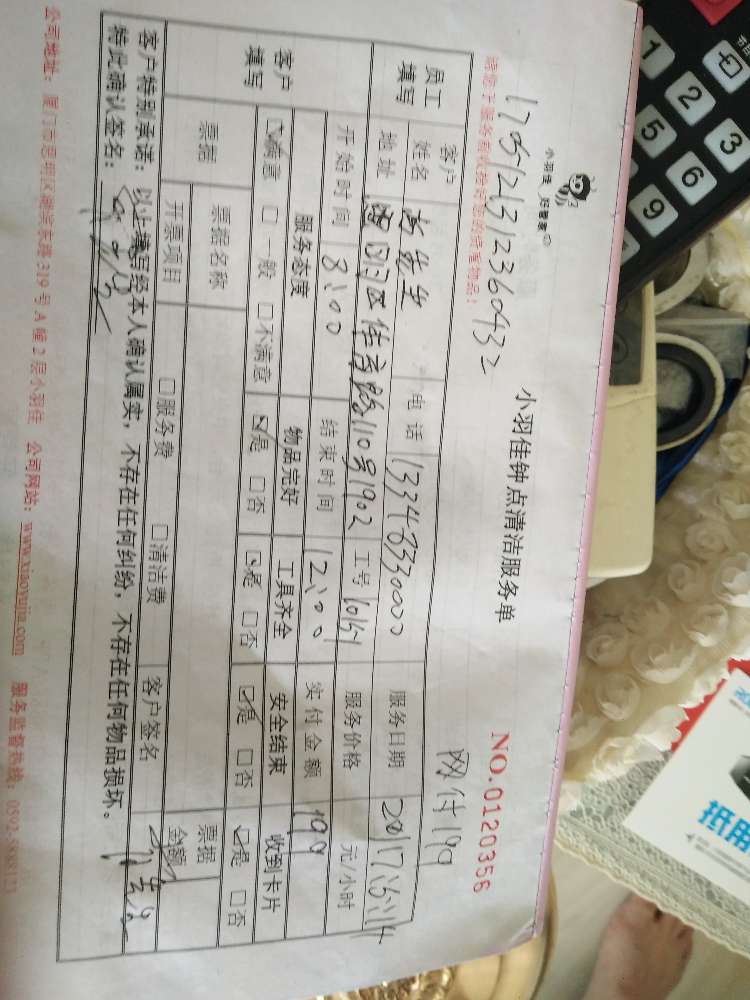 小羽佳 好管家
小羽佳钟点清洁服务单
NO.0120356
170121312360432
网付199
请您于服务前收捡好您的贵重物品：
员工填写
客户姓名
电话 13348330000
服务日期
地址 110号1902
工号
服务价格 元/小时
开始时间 8:00
结束时间 12:00
实付金额 199
客户填写
服务态度 物品完好 工具齐全 安全结束 收到卡片
☑满意 □一般 □不满意 ☑是 □否 ☑是 □否 ☑是 □否 ☑是 □否
票据
票据名称
票据金额
开票项目 □服务费 □清洁费
客户签名
客户特别承诺：以上填写经本人确认属实，不存在任何纠纷，不存在任何物品损坏。
特此确认签名：
公司地址：厦门市思明区湖滨东路319号A幢2层小羽佳 公司网站：www.xiaoyujia.com 服务监督热线：0592-5588123
1
2
3
5
6
9
抵用